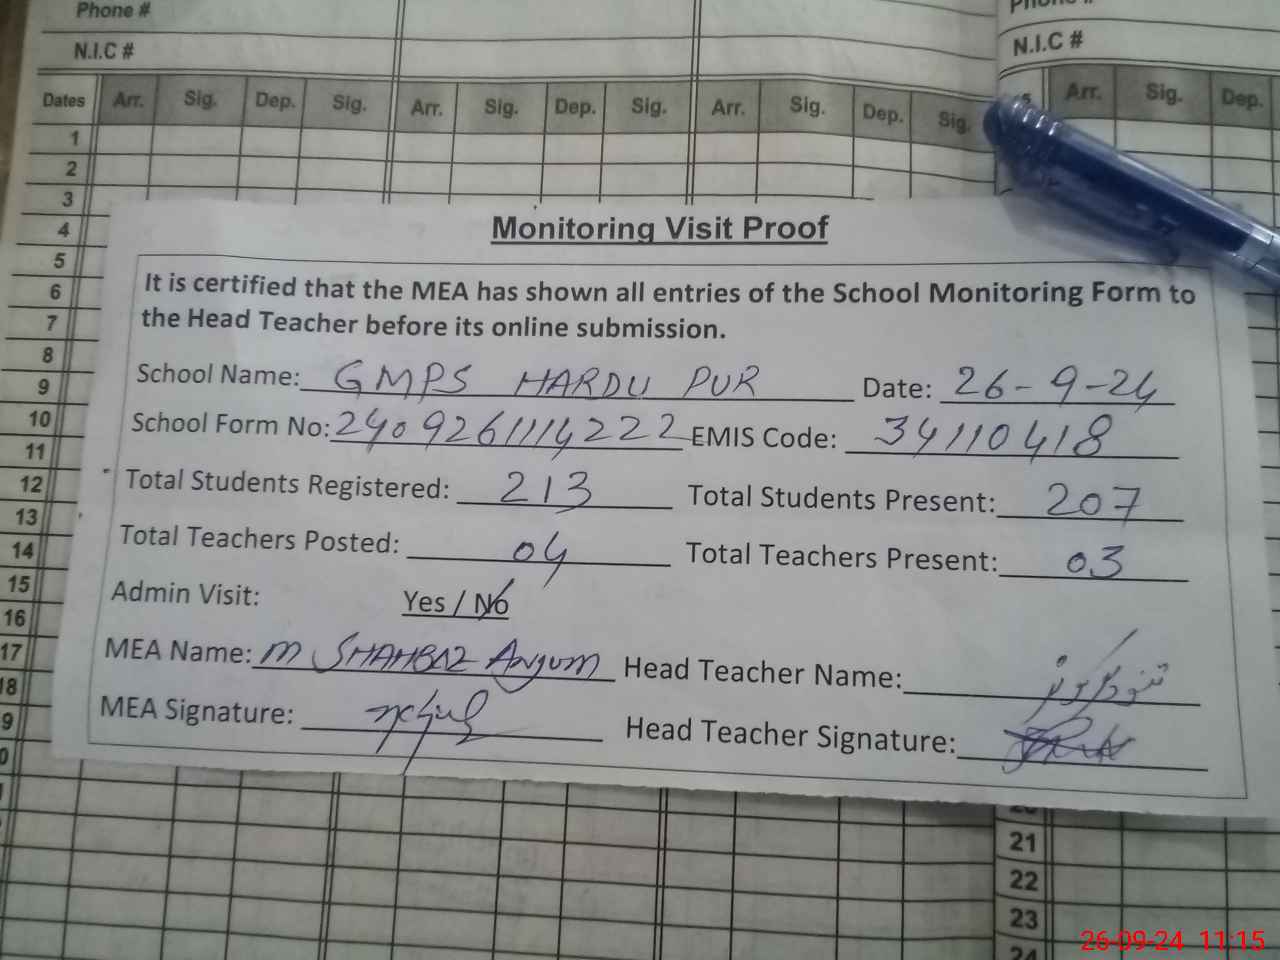 Phone #
N.I.C # N.I.C #
Dates Arr. Sig. Dep. Sig. Arr. Sig. Dep. Sig. Arr. Sig. Dep. Sig. Arr. Sig. Dep.
1
2
3
4
5
6
7
8
9
10
11
12
13
14
15
16
17
Monitoring Visit Proof
It is certified that the MEA has shown all entries of the School Monitoring Form to
the Head Teacher before its online submission.
School Name: GMPS HARDU PUR Date: 26-9-24
School Form No: 2409261114222 EMIS Code: 34110418
Total Students Registered: 213 Total Students Present: 207
Total Teachers Posted: 04 Total Teachers Present: 03
Admin Visit: Yes / No
MEA Name: M SHAHBAZ Anjum Head Teacher Name:
MEA Signature: Head Teacher Signature:
21
22
23
24
26-09-24 11:15